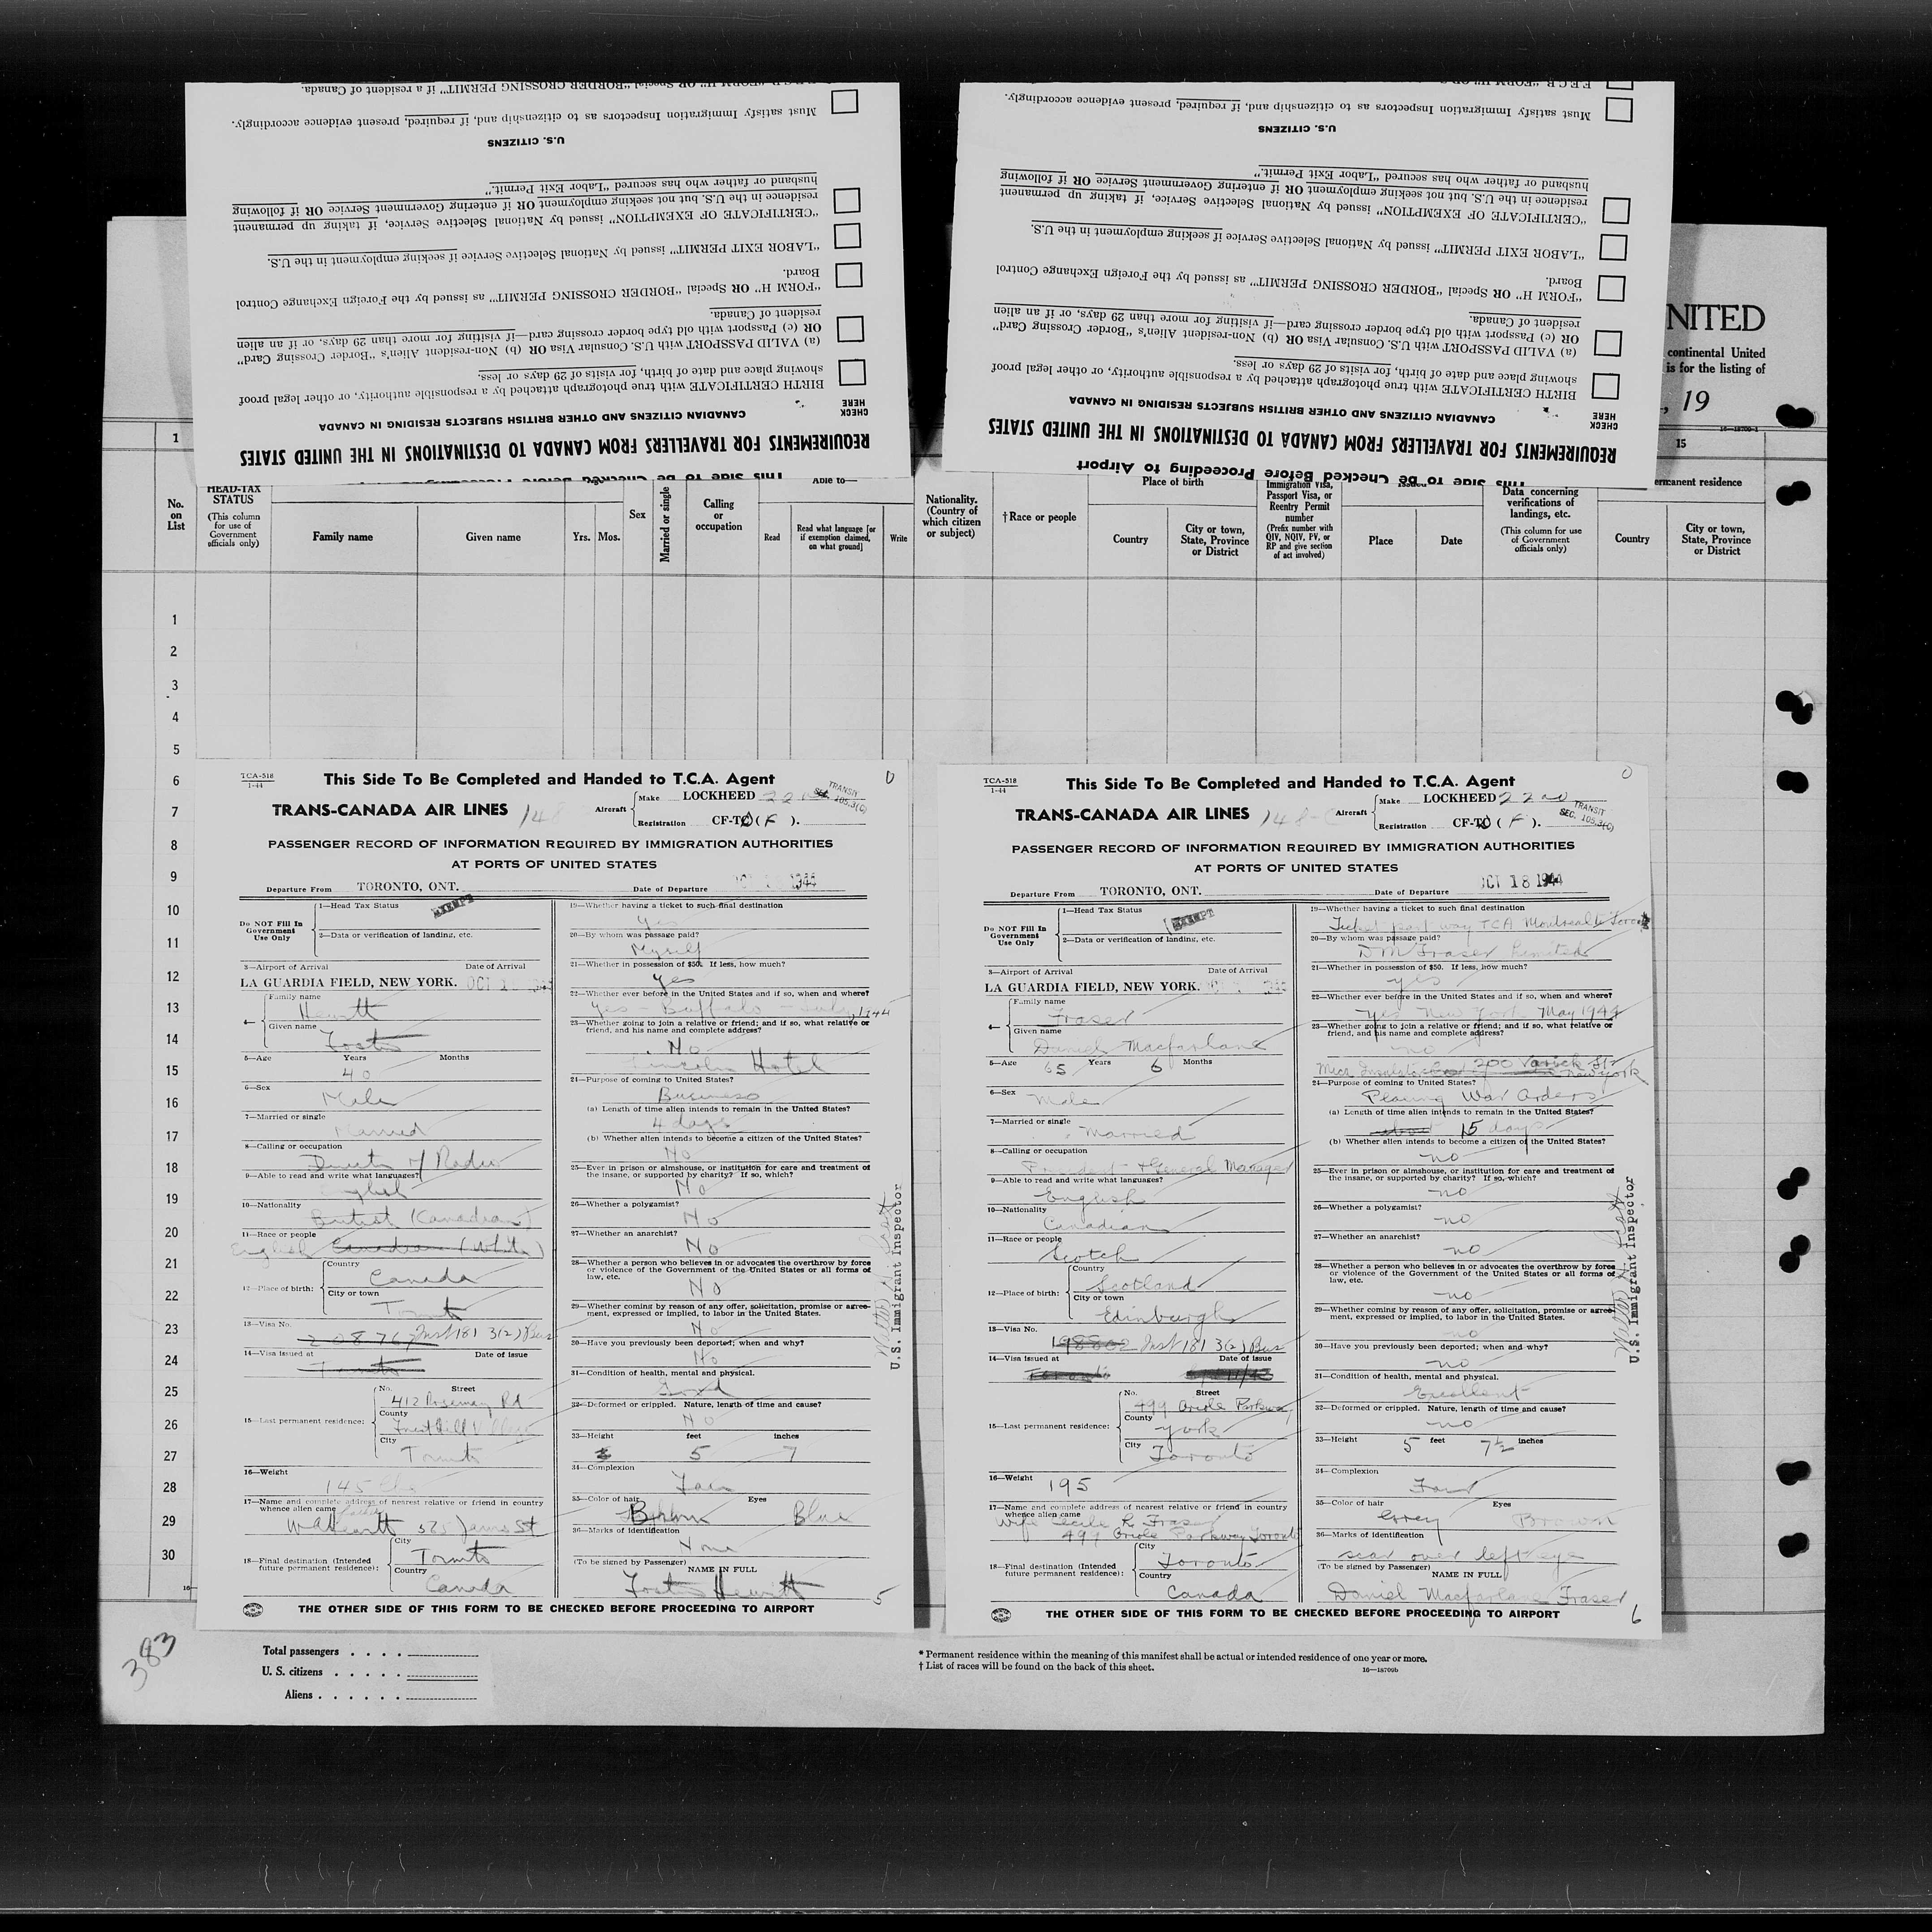 F.E.C.B. "FORM H" OR Special "BORDER CROSSING PERMIT" if a resident of Canada.
Must satisfy Immigration Inspectors as to citizenship and, if required, present evidence accordingly.
U.S. CITIZENS
husband or father who has secured "Labor Exit Permit."
residence in the U.S. but not seeking employment OR if entering Government Service OR if following
"CERTIFICATE OF EXEMPTION" issued by National Selective Service, if taking up permanent
"LABOR EXIT PERMIT" issued by National Selective Service if seeking employment in the U.S.
Board.
"FORM H" OR Special "BORDER CROSSING PERMIT" as issued by the Foreign Exchange Control
resident of Canada.
OR (c) Passport with old type border crossing card—if visiting for more than 29 days, or if an alien
(a) VALID PASSPORT with U.S. Consular Visa OR (b) Non-resident Alien's "Border Crossing Card"
showing place and date of birth, for visits of 29 days or less.
BIRTH CERTIFICATE with true photograph attached by a responsible authority, or other legal proof
CHECK HERE
CANADIAN CITIZENS AND OTHER BRITISH SUBJECTS RESIDING IN CANADA
REQUIREMENTS FOR TRAVELLERS FROM CANADA TO DESTINATIONS IN THE UNITED STATES
This Side to be Checked Before Proceeding
Must satisfy Immigration Inspectors as to citizenship and, if required, present evidence accordingly.
U.S. CITIZENS
husband or father who has secured "Labor Exit Permit."
residence in the U.S. but not seeking employment OR if entering Government Service OR if following
"CERTIFICATE OF EXEMPTION" issued by National Selective Service, if taking up permanent
"LABOR EXIT PERMIT" issued by National Selective Service if seeking employment in the U.S.
Board.
"FORM H" OR Special "BORDER CROSSING PERMIT" as issued by the Foreign Exchange Control
resident of Canada.
OR (c) Passport with old type border crossing card—if visiting for more than 29 days, or if an alien
(a) VALID PASSPORT with U.S. Consular Visa OR (b) Non-resident Alien's "Border Crossing Card"
showing place and date of birth, for visits of 29 days or less.
BIRTH CERTIFICATE with true photograph attached by a responsible authority, or other legal proof
CHECK HERE
CANADIAN CITIZENS AND OTHER BRITISH SUBJECTS RESIDING IN CANADA
REQUIREMENTS FOR TRAVELLERS FROM CANADA TO DESTINATIONS IN THE UNITED STATES
This Side to be Checked Before Proceeding to Airport
NITED
continental United
is for the listing of
, 19
1
15
No. on List
HEAD-TAX STATUS
(This column for use of Government officials only)
Family name
Given name
Yrs.
Mos.
Sex
Married or single
Calling or occupation
Able to—
Read
Read what language [or if exemption claimed, on what ground]
Write
Nationality. (Country of which citizen or subject)
† Race or people
Place of birth
Country
City or town, State, Province or District
Immigration Visa, Passport Visa, or Reentry Permit number
(Prefix number with QIV, NQIV, PV, or RP and give section of act involved)
Place
Date
Data concerning verifications of landings, etc.
(This column for use of Government officials only)
ermanent residence
Country
City or town, State, Province or District
1
2
3
4
5
6
7
8
9
10
11
12
13
14
15
16
17
18
19
20
21
22
23
24
25
26
27
28
29
30
TCA-518
1-44
This Side To Be Completed and Handed to T.C.A. Agent
TRANS-CANADA AIR LINES 148
Aircraft
Make LOCKHEED
Registration CF-TC ( F ).
TRANSIT
SEC. 105.3(C)
PASSENGER RECORD OF INFORMATION REQUIRED BY IMMIGRATION AUTHORITIES
AT PORTS OF UNITED STATES
Departure From TORONTO, ONT. Date of Departure 1944
Do NOT Fill In Government Use Only
1—Head Tax Status EXEMPT
2—Data or verification of landing, etc.
3—Airport of Arrival Date of Arrival
LA GUARDIA FIELD, NEW YORK. OCT
Family name Hewitt
Given name Foster
5—Age Years Months
40
6—Sex
Male
7—Married or single
Married
8—Calling or occupation
Director of Radio
9—Able to read and write what languages?
English
10—Nationality
British (Canadian)
11—Race or people
English Canadian (White)
12—Place of birth:
Country Canada
City or town Toronto
13—Visa No.
208767 Inst 181 3(2) Bus
14—Visa issued at Date of issue
Toronto
15—Last permanent residence:
No. Street
412 Rosemary Rd
County
Forest Hill Village
City
Toronto
16—Weight
145 lbs
17—Name and complete address of nearest relative or friend in country whence alien came
Father
W A Hewitt 525 Jarvis St
18—Final destination (Intended future permanent residence):
City Toronto
Country Canada
19—Whether having a ticket to such final destination
Yes
20—By whom was passage paid?
Myself
21—Whether in possession of $50. If less, how much?
Yes
22—Whether ever before in the United States and if so, when and where?
Yes - Buffalo - July, 1944
23—Whether going to join a relative or friend; and if so, what relative or friend, and his name and complete address?
No
Lincoln Hotel
24—Purpose of coming to United States?
Business
(a) Length of time alien intends to remain in the United States?
4 days
(b) Whether alien intends to become a citizen of the United States?
No
25—Ever in prison or almshouse, or institution for care and treatment of the insane, or supported by charity? If so, which?
No
26—Whether a polygamist?
No
27—Whether an anarchist?
No
28—Whether a person who believes in or advocates the overthrow by force or violence of the Government of the United States or all forms of law, etc.
No
29—Whether coming by reason of any offer, solicitation, promise or agreement, expressed or implied, to labor in the United States.
No
30—Have you previously been deported; when and why?
No
31—Condition of health, mental and physical.
Good
32—Deformed or crippled. Nature, length of time and cause?
No
33—Height feet inches
5 7
34—Complexion
Fair
35—Color of hair Eyes
Brown Blue
36—Marks of identification
None
(To be signed by Passenger) NAME IN FULL
Foster Hewitt
5
U.S. Immigrant Inspector
THE OTHER SIDE OF THIS FORM TO BE CHECKED BEFORE PROCEEDING TO AIRPORT
TCA-518
1-44
This Side To Be Completed and Handed to T.C.A. Agent
TRANS-CANADA AIR LINES 148-
Aircraft
Make LOCKHEED 2200
Registration CF-TC ( F ).
TRANSIT
SEC. 105.3(C)
PASSENGER RECORD OF INFORMATION REQUIRED BY IMMIGRATION AUTHORITIES
AT PORTS OF UNITED STATES
Departure From TORONTO, ONT. Date of Departure OCT 18 1944
Do NOT Fill In Government Use Only
1—Head Tax Status EXEMPT
2—Data or verification of landing, etc.
3—Airport of Arrival Date of Arrival
LA GUARDIA FIELD, NEW YORK.
Family name Fraser
Given name
Daniel Macfarlane
5—Age 65 Years 6 Months
6—Sex
Male
7—Married or single
Married
8—Calling or occupation
President & General Manager
9—Able to read and write what languages?
English
10—Nationality
Canadian
11—Race or people
Scotch
12—Place of birth:
Country Scotland
City or town Edinburgh
13—Visa No.
198802 Inst 181 3(2) Bus
14—Visa issued at Date of issue
Toronto
15—Last permanent residence:
No. Street
499 Oriole Parkway
County York
City Toronto
16—Weight
195
17—Name and complete address of nearest relative or friend in country whence alien came
Wife Cecile R Fraser
499 Oriole Parkway Toronto
18—Final destination (Intended future permanent residence):
City Toronto
Country Canada
19—Whether having a ticket to such final destination
Ticket part way TCA Montreal to Toronto
20—By whom was passage paid?
D M Fraser Limited
21—Whether in possession of $50. If less, how much?
yes
22—Whether ever before in the United States and if so, when and where?
yes New York May 1944
23—Whether going to join a relative or friend; and if so, what relative or friend, and his name and complete address?
no
Mica Insulator Co 200 Varick St
New York
24—Purpose of coming to United States?
Placing War Orders
(a) Length of time alien intends to remain in the United States?
about 15 days
(b) Whether alien intends to become a citizen of the United States?
no
25—Ever in prison or almshouse, or institution for care and treatment of the insane, or supported by charity? If so, which?
no
26—Whether a polygamist?
no
27—Whether an anarchist?
no
28—Whether a person who believes in or advocates the overthrow by force or violence of the Government of the United States or all forms of law, etc.
no
29—Whether coming by reason of any offer, solicitation, promise or agreement, expressed or implied, to labor in the United States.
no
30—Have you previously been deported; when and why?
no
31—Condition of health, mental and physical.
Excellent
32—Deformed or crippled. Nature, length of time and cause?
no
33—Height 5 feet 7½ inches
34—Complexion
Fair
35—Color of hair Eyes
Grey Brown
36—Marks of identification
scar over left eye
(To be signed by Passenger) NAME IN FULL
Daniel Macfarlane Fraser
6
U.S. Immigrant Inspector
THE OTHER SIDE OF THIS FORM TO BE CHECKED BEFORE PROCEEDING TO AIRPORT
383
Total passengers
U. S. citizens
Aliens
* Permanent residence within the meaning of this manifest shall be actual or intended residence of one year or more.
† List of races will be found on the back of this sheet.
16—18709b